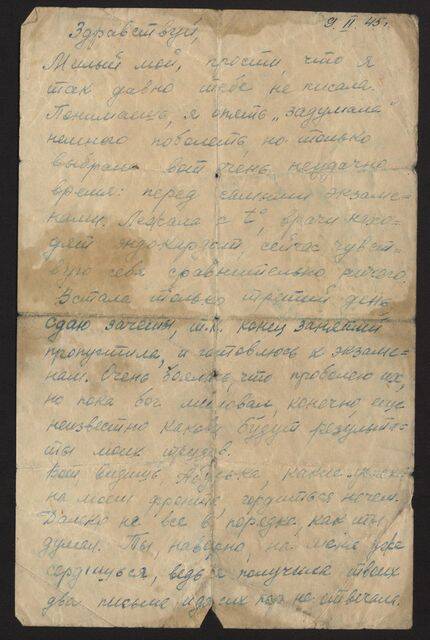 9. II. 45 г.
Здравствуй,
Милый мой, прости, что я
так давно тебе не писала.
Понимаешь, я опять „задумала“
немного поболеть, но только
выбрала вот очень неудачно
время: перед самыми экзаме-
нами. Лежала с t°, врачи нахо-
дят эндокардит, сейчас чувст-
вую себя сравнительно ничего.
Встала только третий день,
сдаю зачеты, т.к. конец занятий
пропустила, и готовлюсь к экзаме-
нам. Очень боялась, что проболею их,
но пока бог миловал, конечно, еще
неизвестно каковы будут результа-
ты моих трудов.
Вот видишь, какие
на моем фронте, гордиться нечем.
Далеко не все в порядке, как ты
думал. Ты, наверно, на меня уже
сердишься, ведь я получила твоих
два письма и до сих пор не отвечала.